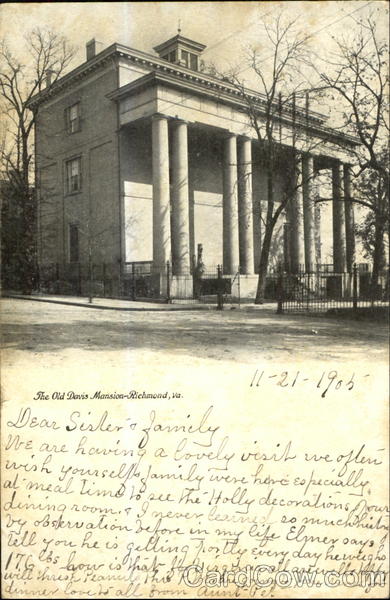 The Old Davis Mansion-Richmond, Va.
11-21-1905
Dear Sister & family
We are having a lovely visit we often
wish yourself & family were here especially
at meal time to see the Holly decorations in our
dining room. I never learned so much
by observation before in my life Elmer says I
tell you he is getting Portly every day he weighs
176 lbs how is that
will
dinner love to all from Aunt
CardCow.com